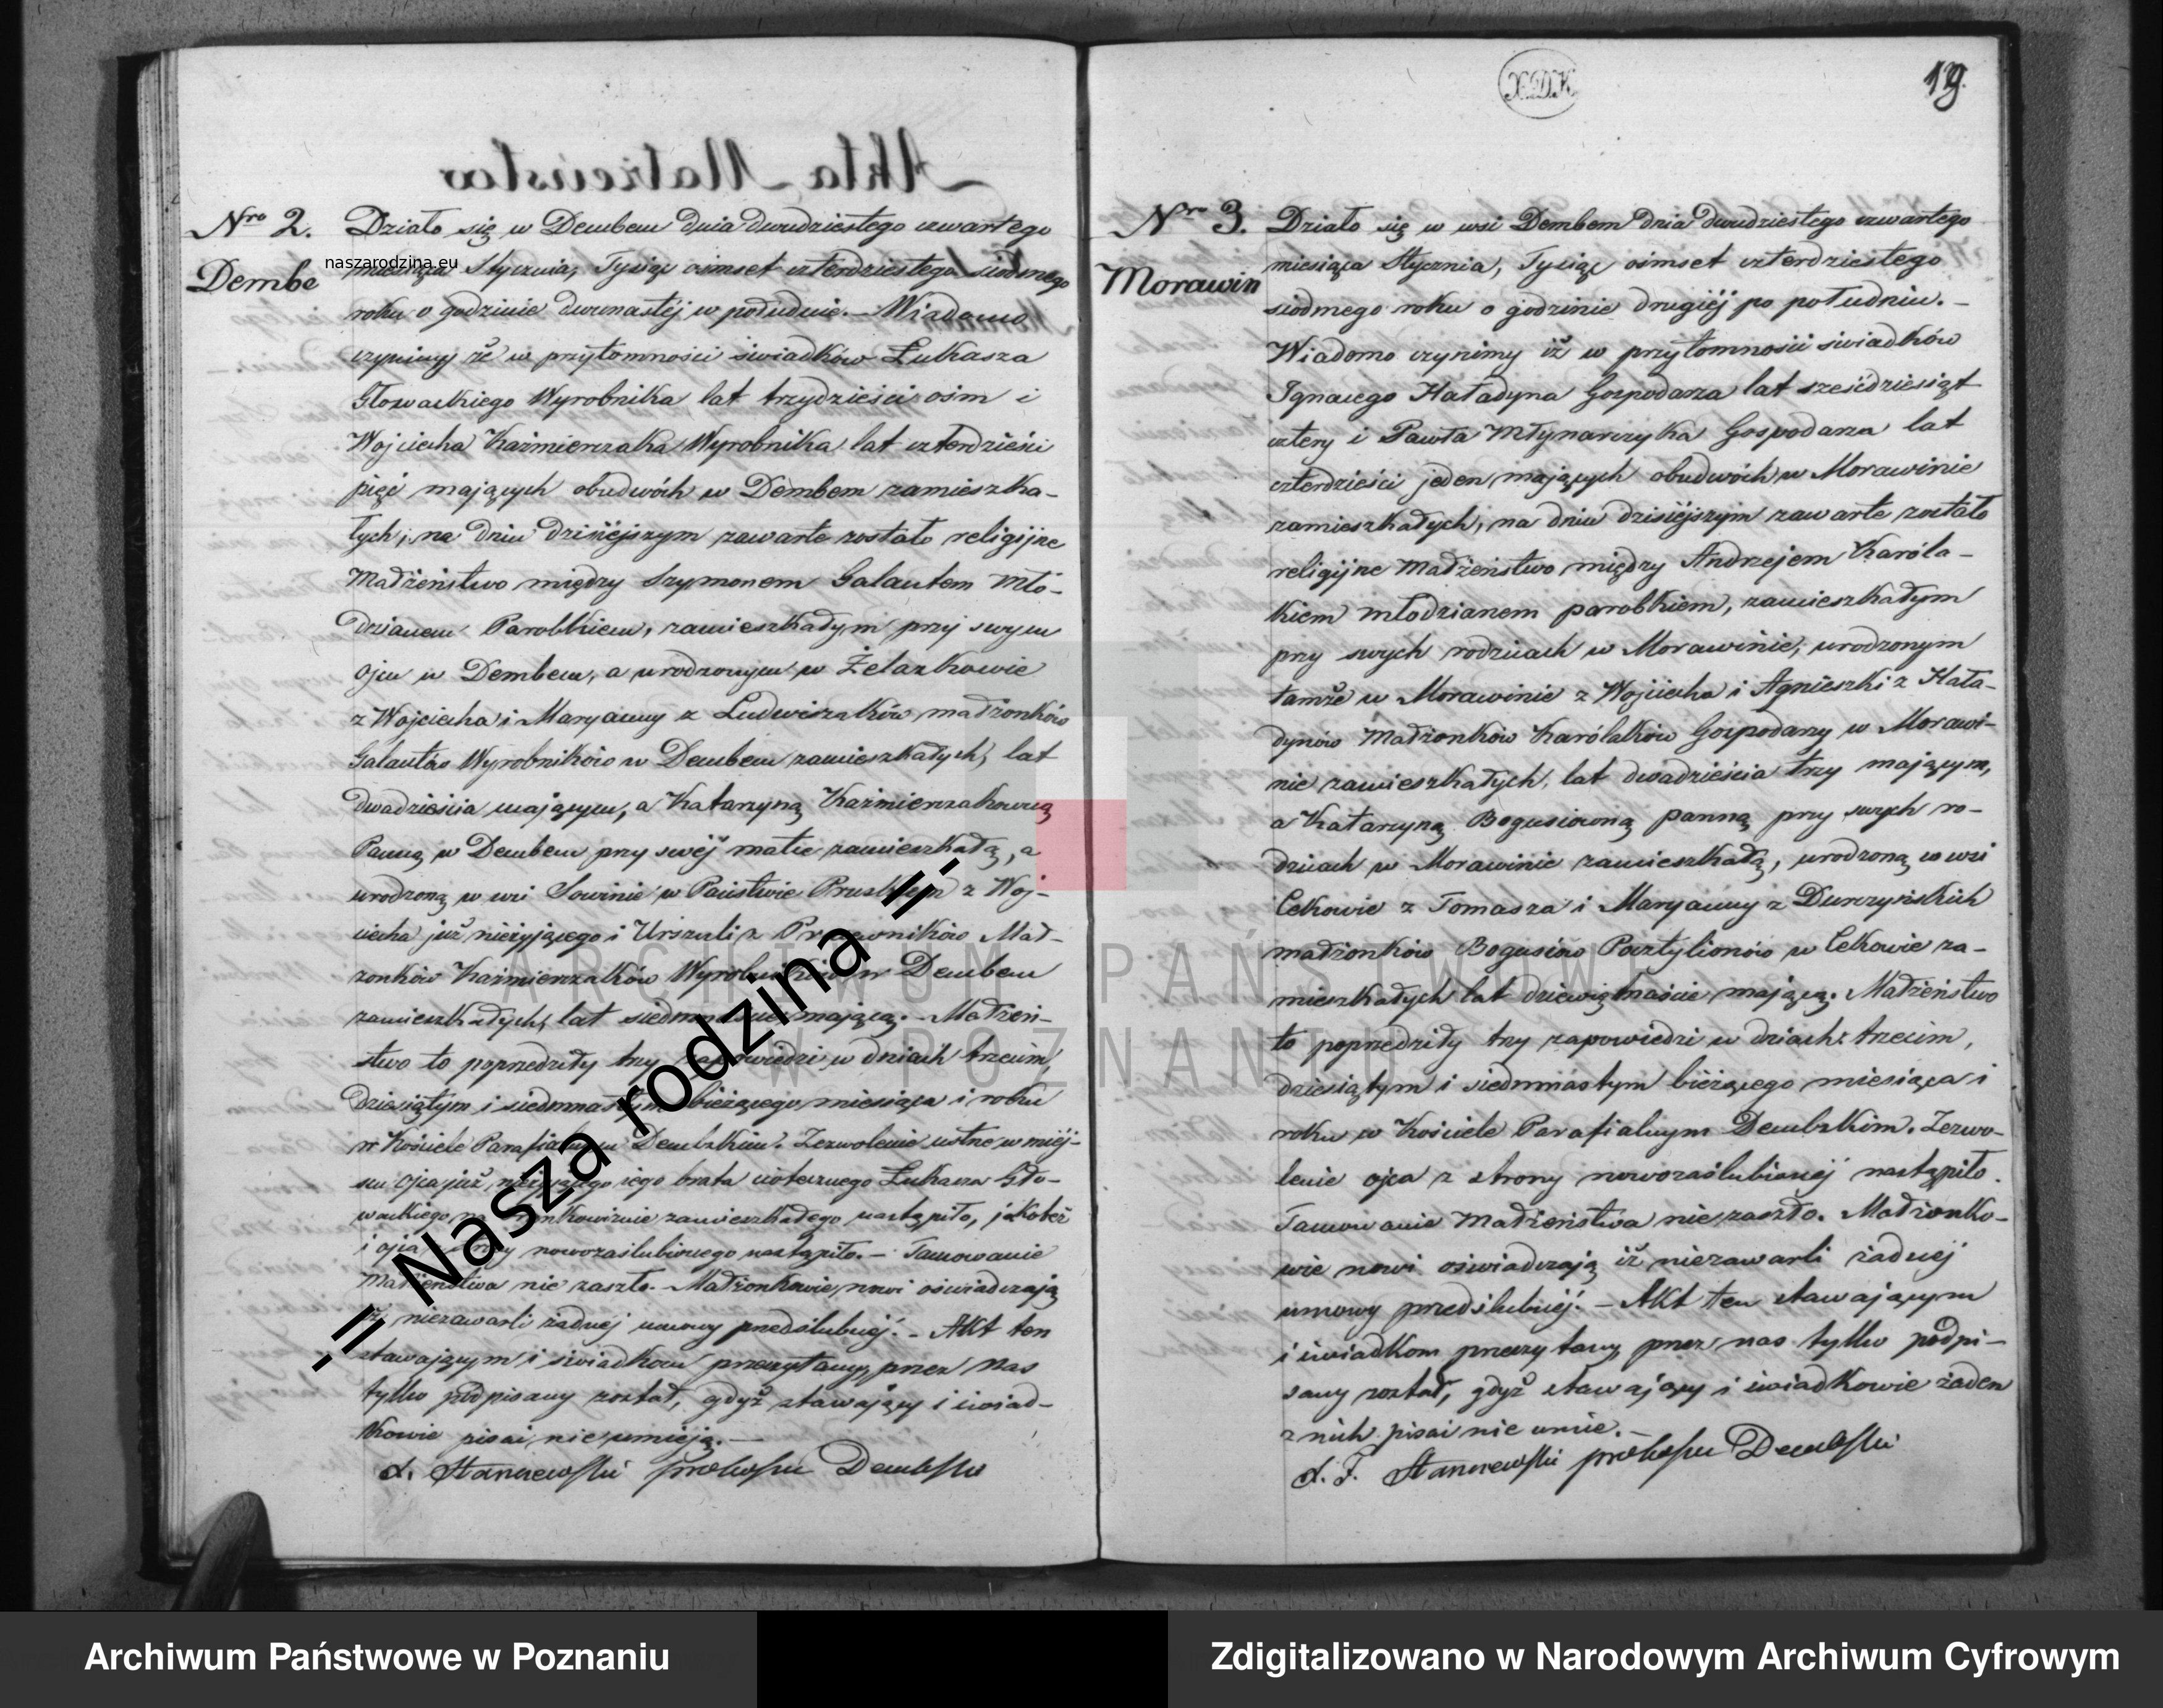 Nro 2.
Dembe
Działo się w Dembem dnia dwudziestego czwartego
miesiąca Stycznia, Tysiąc ośmset czterdziestego siódmego
roku o godzinie dwunastéj w południe. – Wiadomo
czynimy że w przytomności świadków Łukasza
Głowackiego Wyrobnika lat trzydzieści ośm i
Wojciecha Kaźmierczaka Wyrobnika lat czterdzieści
pięć mających obudwóch w Dembem zamieszka-
łych; na dniu dzisiéjszym zawarte zostało religijne
Małżeństwo między Szymonem Galantem Mło-
dzianem Parobkiem, zamieszkałym przy swym
ojcu w Dembem, a urodzonym w Żelazkowie
z Wojciecha i Maryanny z Ludwiczaków małżonków
Galantów Wyrobników w Dembem zamieszkałych, lat
dwadzieścia mającym, a Katarzyną Kaźmierczakowną
Panną w Dembem przy swéj matce zamieszkałą, a
urodzoną w wsi Sowinie w Państwie Pruskiem z Woj-
ciecha już nieżyjącego i Urszuli z Małż-
żonków Kaźmierczaków Wyrobników w Dembem
zamieszkałych, lat siedmnaście mającą. – Małżeń-
stwo to poprzedziły trzy zapowiedzi w dniach trzecim,
dziesiątym i siedmnastym bieżącego miesiąca i roku
w Kościele Parafialnym Dembskim. Zezwolenie ustne w miéj-
scu ojca już nieżyjącego iego brata ciotecznego Łukasza Gło-
wackiego na zamieszkałego nastąpiło, jakoteż
i ojca strony nowozaślubionego nastąpiło. – Tamowanie
Małżeństwa nie zaszło. – Małżonkowie nowi oświadczają
iż niezawarli żadnej umowy przedślubnéj. – Akt ten
stawającym i świadkom przeczytany, przez nas
tylko podpisany został, gdyż stawający i świad-
kowie pisać nie umieją. –
Stanczewski proboszcz Dembski
19.
X.D.K
Nro 3.
Morawin
Działo się w wsi Dembem dnia dwudziestego czwartego
miesiąca Stycznia, Tysiąc ośmset czterdziestego
siódmego roku o godzinie drugiéj po południu. –
Wiadomo czynimy iż w przytomności świadków
Ignacego Haładyna Gospodarza lat sześćdziesiąt
cztery i Pawła Młynarczyka Gospodarza lat
czterdzieści jeden mających obudwóch w Morawinie
zamieszkałych, na dniu dzisiéjszym zawarte zostało
religijne Małżeństwo między Andrzejem Karóla-
kiem młodzianem parobkiem, zamieszkałym
przy swych rodzicach w Morawinie, urodzonym
tamże w Morawinie z Wojciecha i Agnieszki z Hała-
dynów Małżonków Karólaków Gospodarzy w Morawi-
nie zamieszkałych, lat dwadzieścia trzy mającym,
a Katarzyną Bogusiówną panną przy swych ro-
dzicach w Morawinie zamieszkałą, urodzoną w wsi
Cekowie z Tomasza i Maryanny z Durczyńskich
małżonków Bogusiów Pocztylionów w Cekowie za-
mieszkałych lat dziewiętnaście mającą. Małżeństwo
to poprzedziły trzy zapowiedzi w dniach: trzecim,
dziesiątym i siedmnastym bieżącego miesiąca i
roku w Kościele Parafialnym Dembskim. Zezwo-
lenie ojca z strony nowozaślubionéj nastąpiło.
Tamowanie Małżeństwa nie zaszło. Małżonko-
wie nowi oświadczają iż niezawarli żadnej
umowy przedślubnéj. – Akt ten stawającym
i świadkom przeczytany przez nas tylko podpi-
sany został, gdyż stawający i świadkowie żaden
z nich pisać nie umie. –
Stanczewski proboszcz Dembski
naszarodzina.eu
-= Nasza rodzina =-
ARCHIWUM PAŃSTWOWE
W POZNANIU
Archiwum Państwowe w Poznaniu
Zdigitalizowano w Narodowym Archiwum Cyfrowym